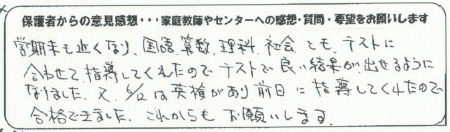 保護者からの意見感想・・・家庭教師やセンターへの感想・質問・要望をお願いします
学期末も近くなり、国語、算数、理科、社会とも、テストに
合わせて指導してくれたのでテストで良い結果が出せるように
なりました。又、6/12は英検があり前日に指導してくれたので
合格できました。これからもお願いします。